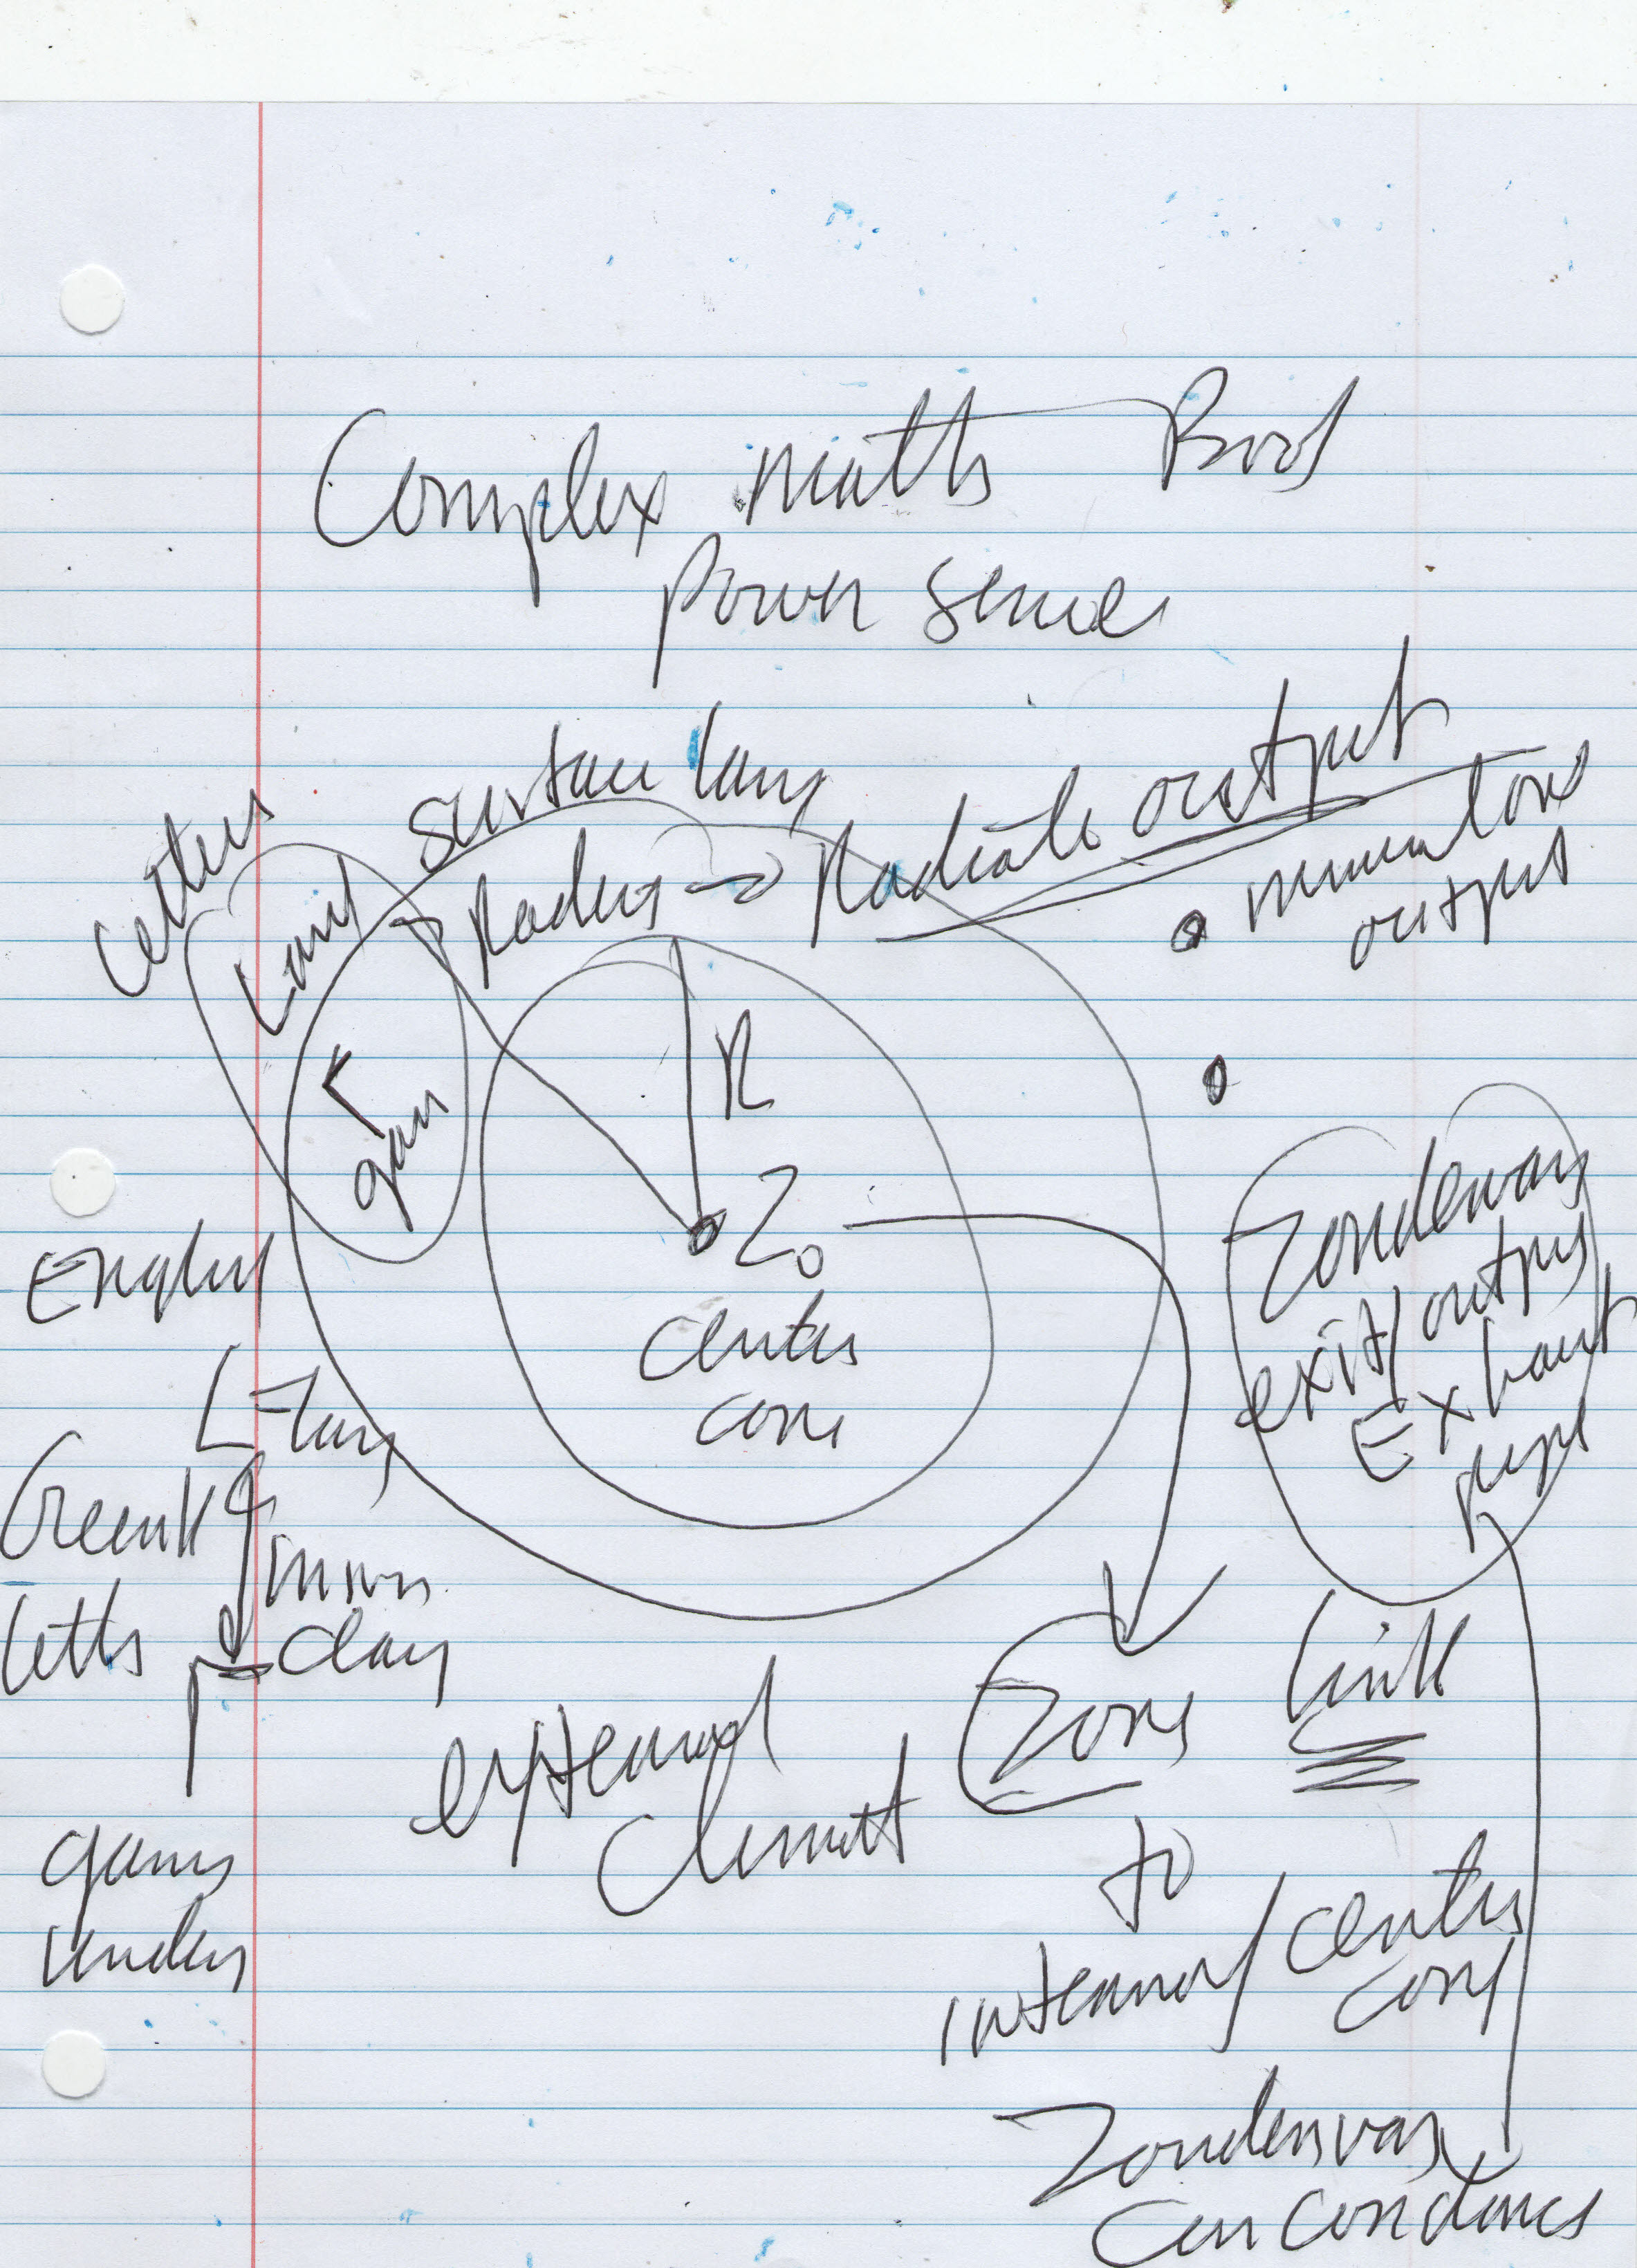 Complex Maths Book
Power Series
Surface lang
Letters
Lang
Radius → Radiate output
numerator
output
R
gam
Z₀
Center
core
Zondervan
exit/output
Exhaust
pipe
English
L-lang
Greek
letts
day
gamma
under
external
Climate
Zone link
to
internal/center
core
Zondervan
Concordance